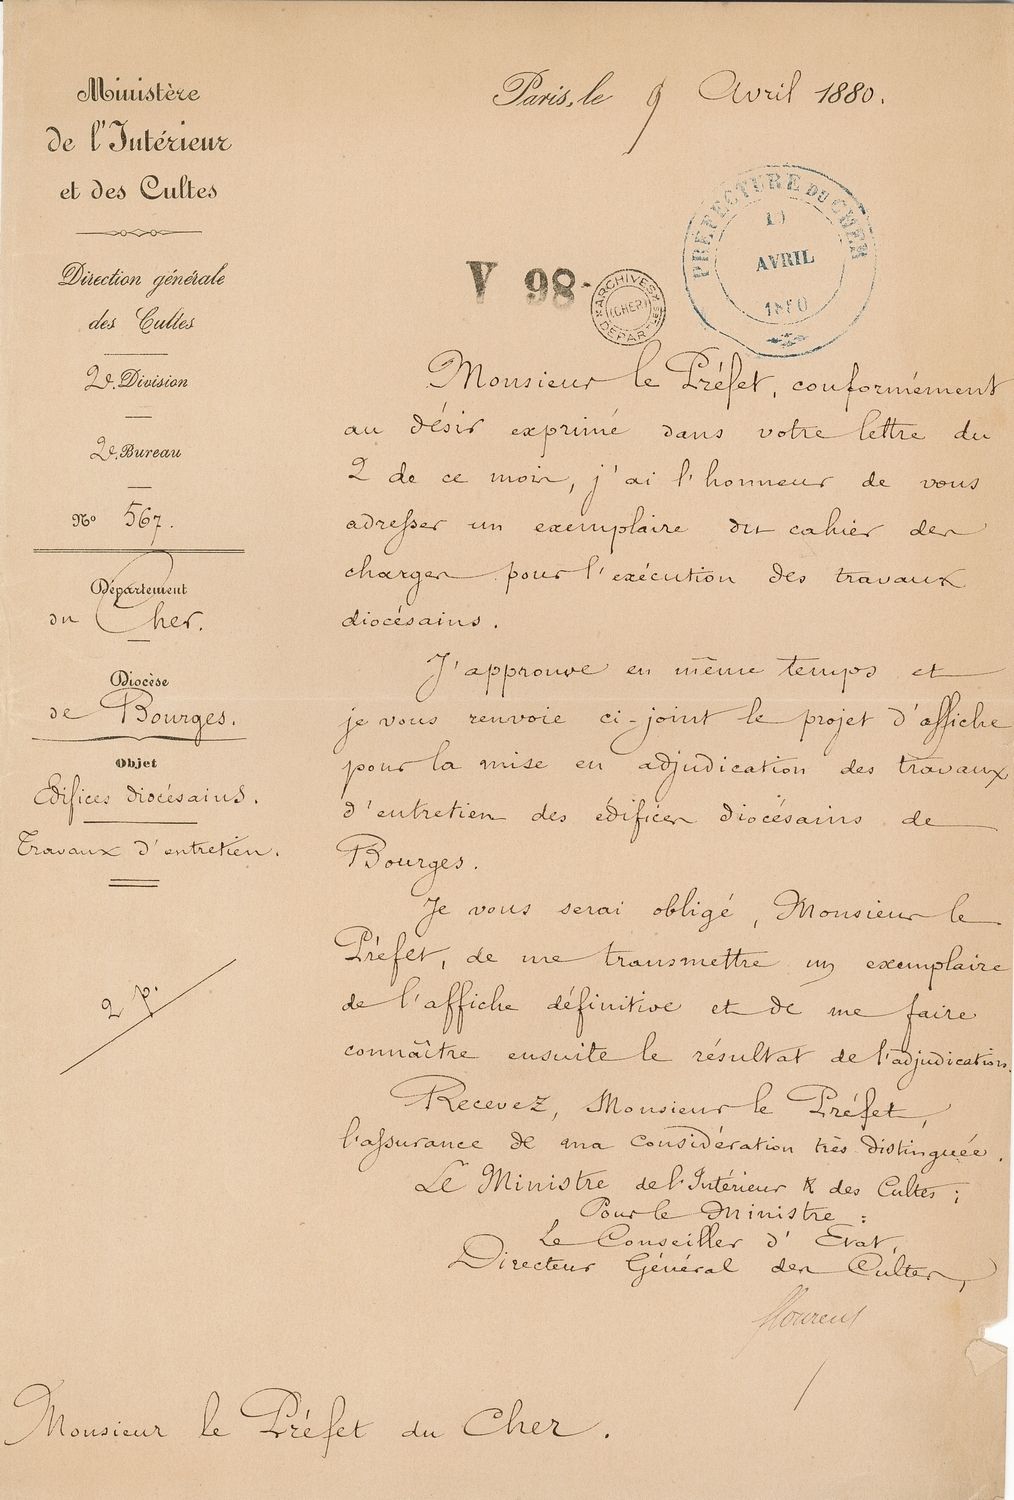 Ministère
de l'Intérieur
et des Cultes
Direction générale
des Cultes
2e. Division
2e. Bureau
No 567.
Département
du Cher.
Diocèse
de Bourges.
Objet
Edifices diocésains.
Travaux d'entretien.
2 p.
Paris, le 9 Avril 1880.
PRÉFECTURE DU CHER
AVRIL
1880
V 98
ARCHIVES
(CHER)
DÉPARTles
Monsieur le Préfet, conformément
au désir exprimé dans votre lettre du
2 de ce mois, j'ai l'honneur de vous
adresser un exemplaire du cahier des
charges pour l'exécution des travaux
diocésains.
J'approuve en même temps et
je vous renvoie ci-joint le projet d'affiche
pour la mise en adjudication des travaux
d'entretien des édifices diocésains de
Bourges.
Je vous serai obligé, Monsieur le
Préfet, de me transmettre un exemplaire
de l'affiche définitive et de me faire
connaître ensuite le résultat de l'adjudication.
Recevez, Monsieur le Préfet,
l'assurance de ma considération très distinguée.
Le Ministre de l'Intérieur & des Cultes;
Pour le Ministre :
Le Conseiller d'Etat,
Directeur Général des Cultes,
Flourens
Monsieur le Préfet du Cher.